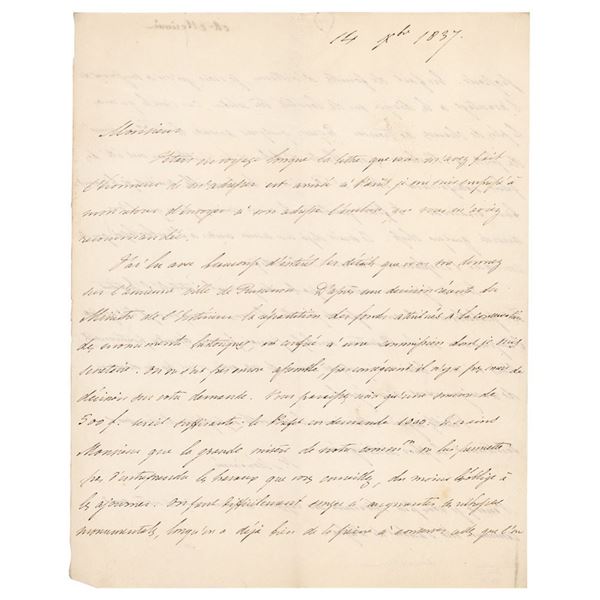 14 xbre 1837.
Monsieur,
Etais en voyage lorsque la lettre que vous m'avez fait
l'honneur de m'adresser est arrivée à Paris, je me suis empressé à
mon retour d'envoyer à son adresse l'incluse que vous m'aviez
recommandée.
J'ai lu avec beaucoup d'intérêt les détails que vous me donnez
sur l'ancienne ville de D'après une décision récente du
Ministre de l'Intérieur la répartition des fonds attribués à la conservation
des monuments historiques est confiée à une commission dont je suis
secrétaire. On ne s'est pas encore assemblé, par conséquent il n'y a pas eu de
décision sur votre demande. Vous paraissez croire qu'une somme de
500 f. serait suffisante, le Préfet en demande 1000. Je crains
Monsieur que la grande misère de notre common. ne lui permette
pas d'entreprendre les travaux que vous conseillez, du moins l'oblige à
les ajourner. On peut difficilement songer à augmenter nos richesses
monumentales, lorsqu'on a déjà bien de la peine à conserver celles que l'on